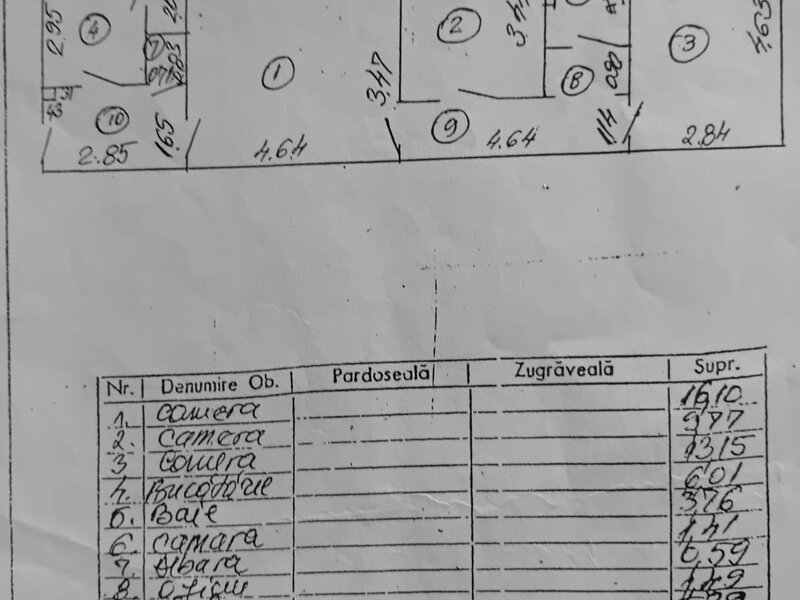 2.95
4
7
2.03
1
3.47
2
8
080
3
4,63
31
43
10
2.85
1.65
4.64
9
4.64
114
2.84
Nr. Denumire Ob. Pardoseală Zugrăveală Supr.
1. camera 16,10
2. camera 9,77
3 camera 13,15
4. Bucatarie 6,01
5. Baie 3,76
6. camara 1,41
7. debara 0,59
8. 1,29